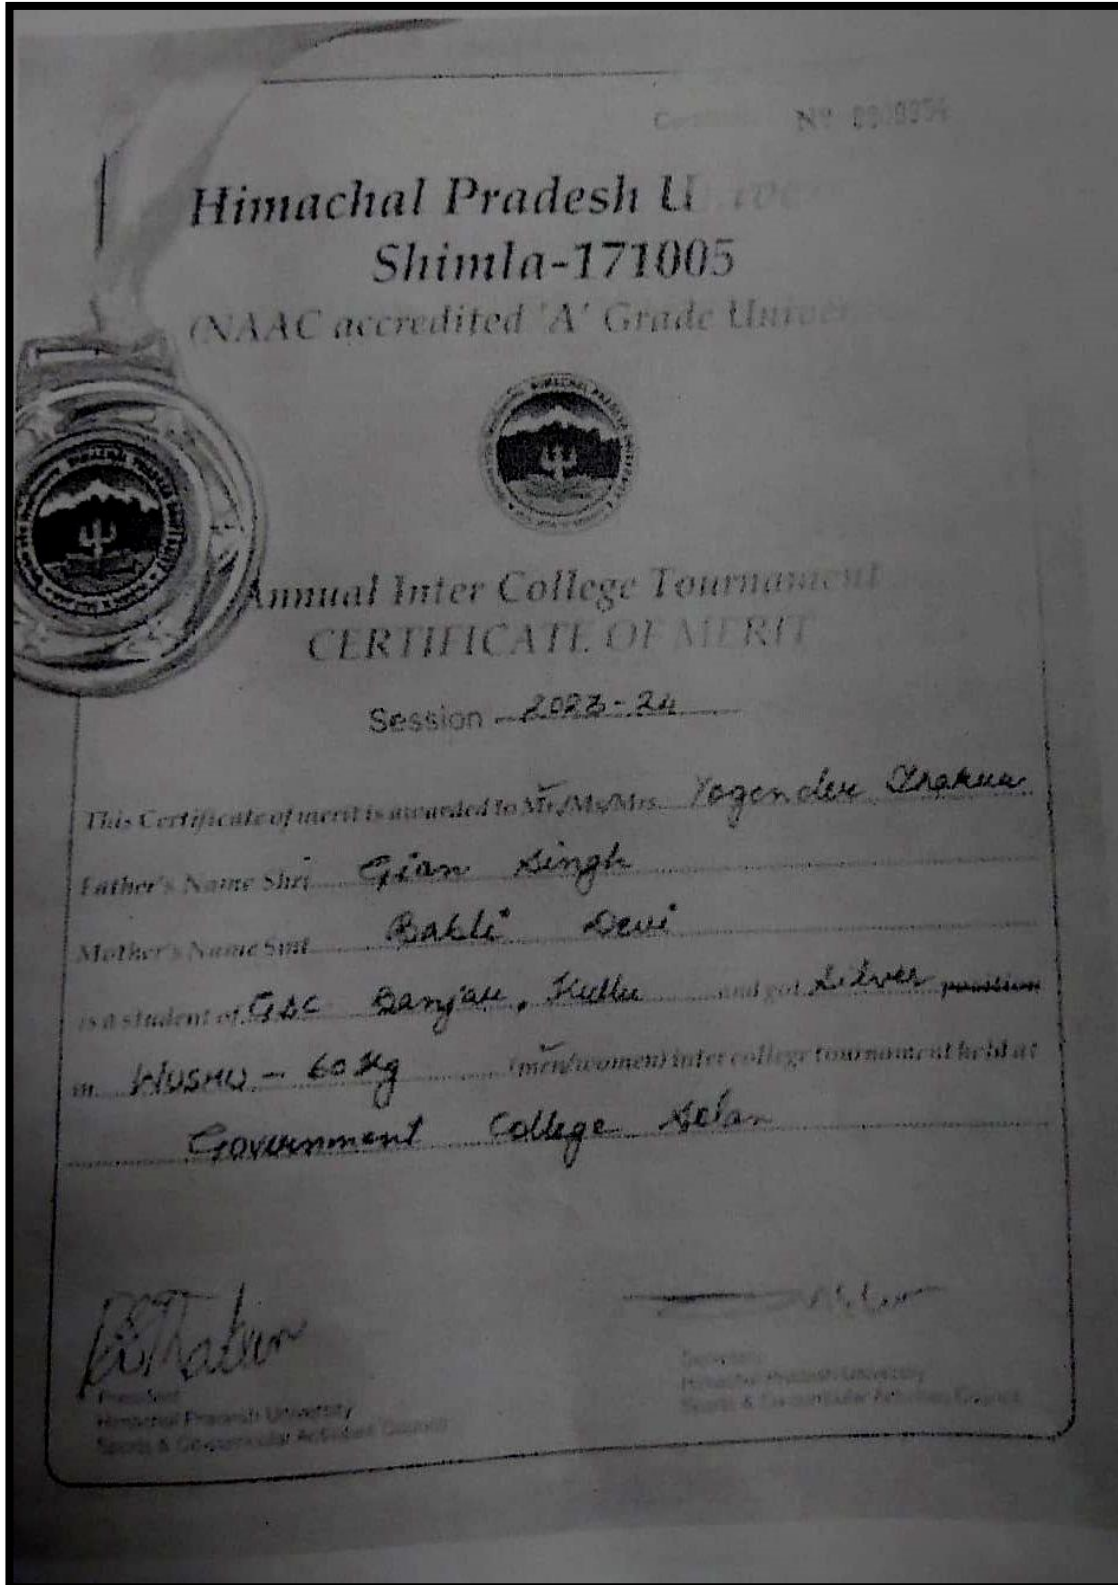 Certificate Nº
Himachal Pradesh U
Shimla-171005
(NAAC accredited 'A' Grade Univer
Annual Inter College Tournament
CERTIFICATE OF MERIT
Session 2023-24
This Certificate of merit is awarded to Mr./Ms/Mrs. Yogender Thakur
Father's Name Shri Gian Singh
Mother's Name Smt Devi
is a student of GDC Banjar, Kullu and got Silver position
in WUSHU - 60 Kg (men/women) inter college tournament held at
Government College Solan
President
Himachal Pradesh University
Sports & Co-curricular Activities Council
Secretary
Himachal Pradesh University
Sports & Co-curricular Activities Council